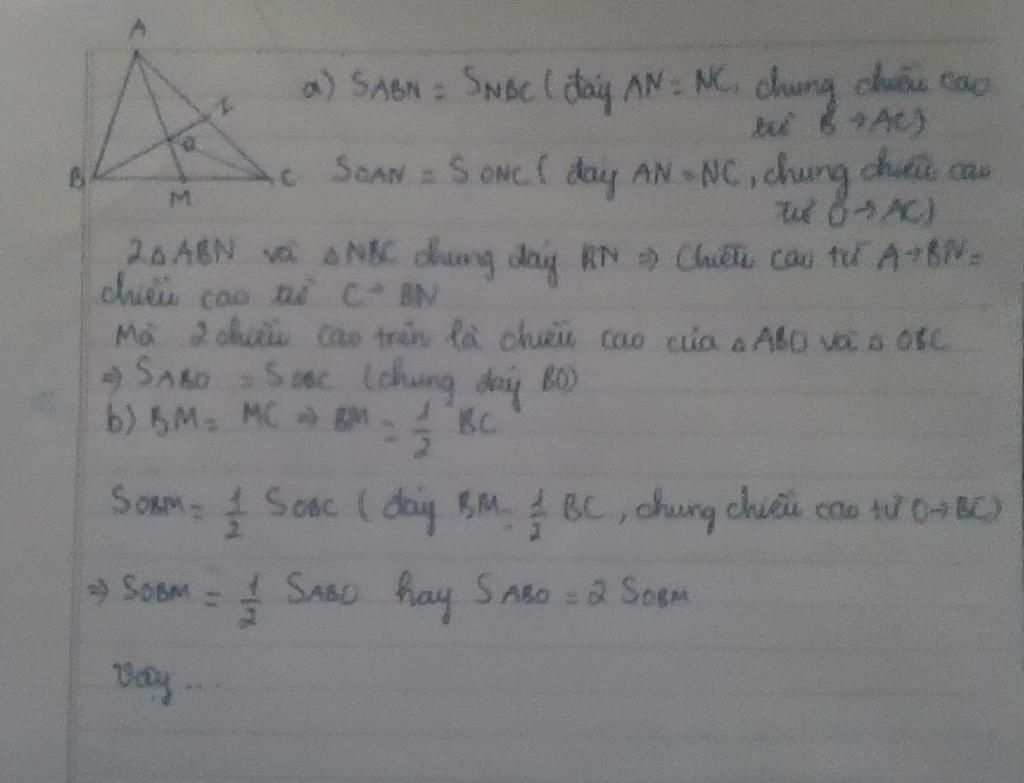 A
N
O
B
C
M
a) SABN = SNBC ( đáy AN = NC, chung chiều cao
từ B → AC)
SOAN = SONC ( đáy AN = NC, chung chiều cao
từ O → AC)
2 △ ABN và △ NBC chung đáy BN ⇒ Chiều cao từ A → BN =
chiều cao từ C → BN
Mà 2 chiều cao trên là chiều cao của △ ABO và △ OBC
⇒ SABO = SOBC (chung đáy BO)
b) BM = MC ⇒ BM = 1/2 BC
SOBM = 1/2 SOBC ( đáy BM = 1/2 BC, chung chiều cao từ O → BC)
⇒ SOBM = 1/2 SABO hay SABO = 2 SOBM
Vậy ...